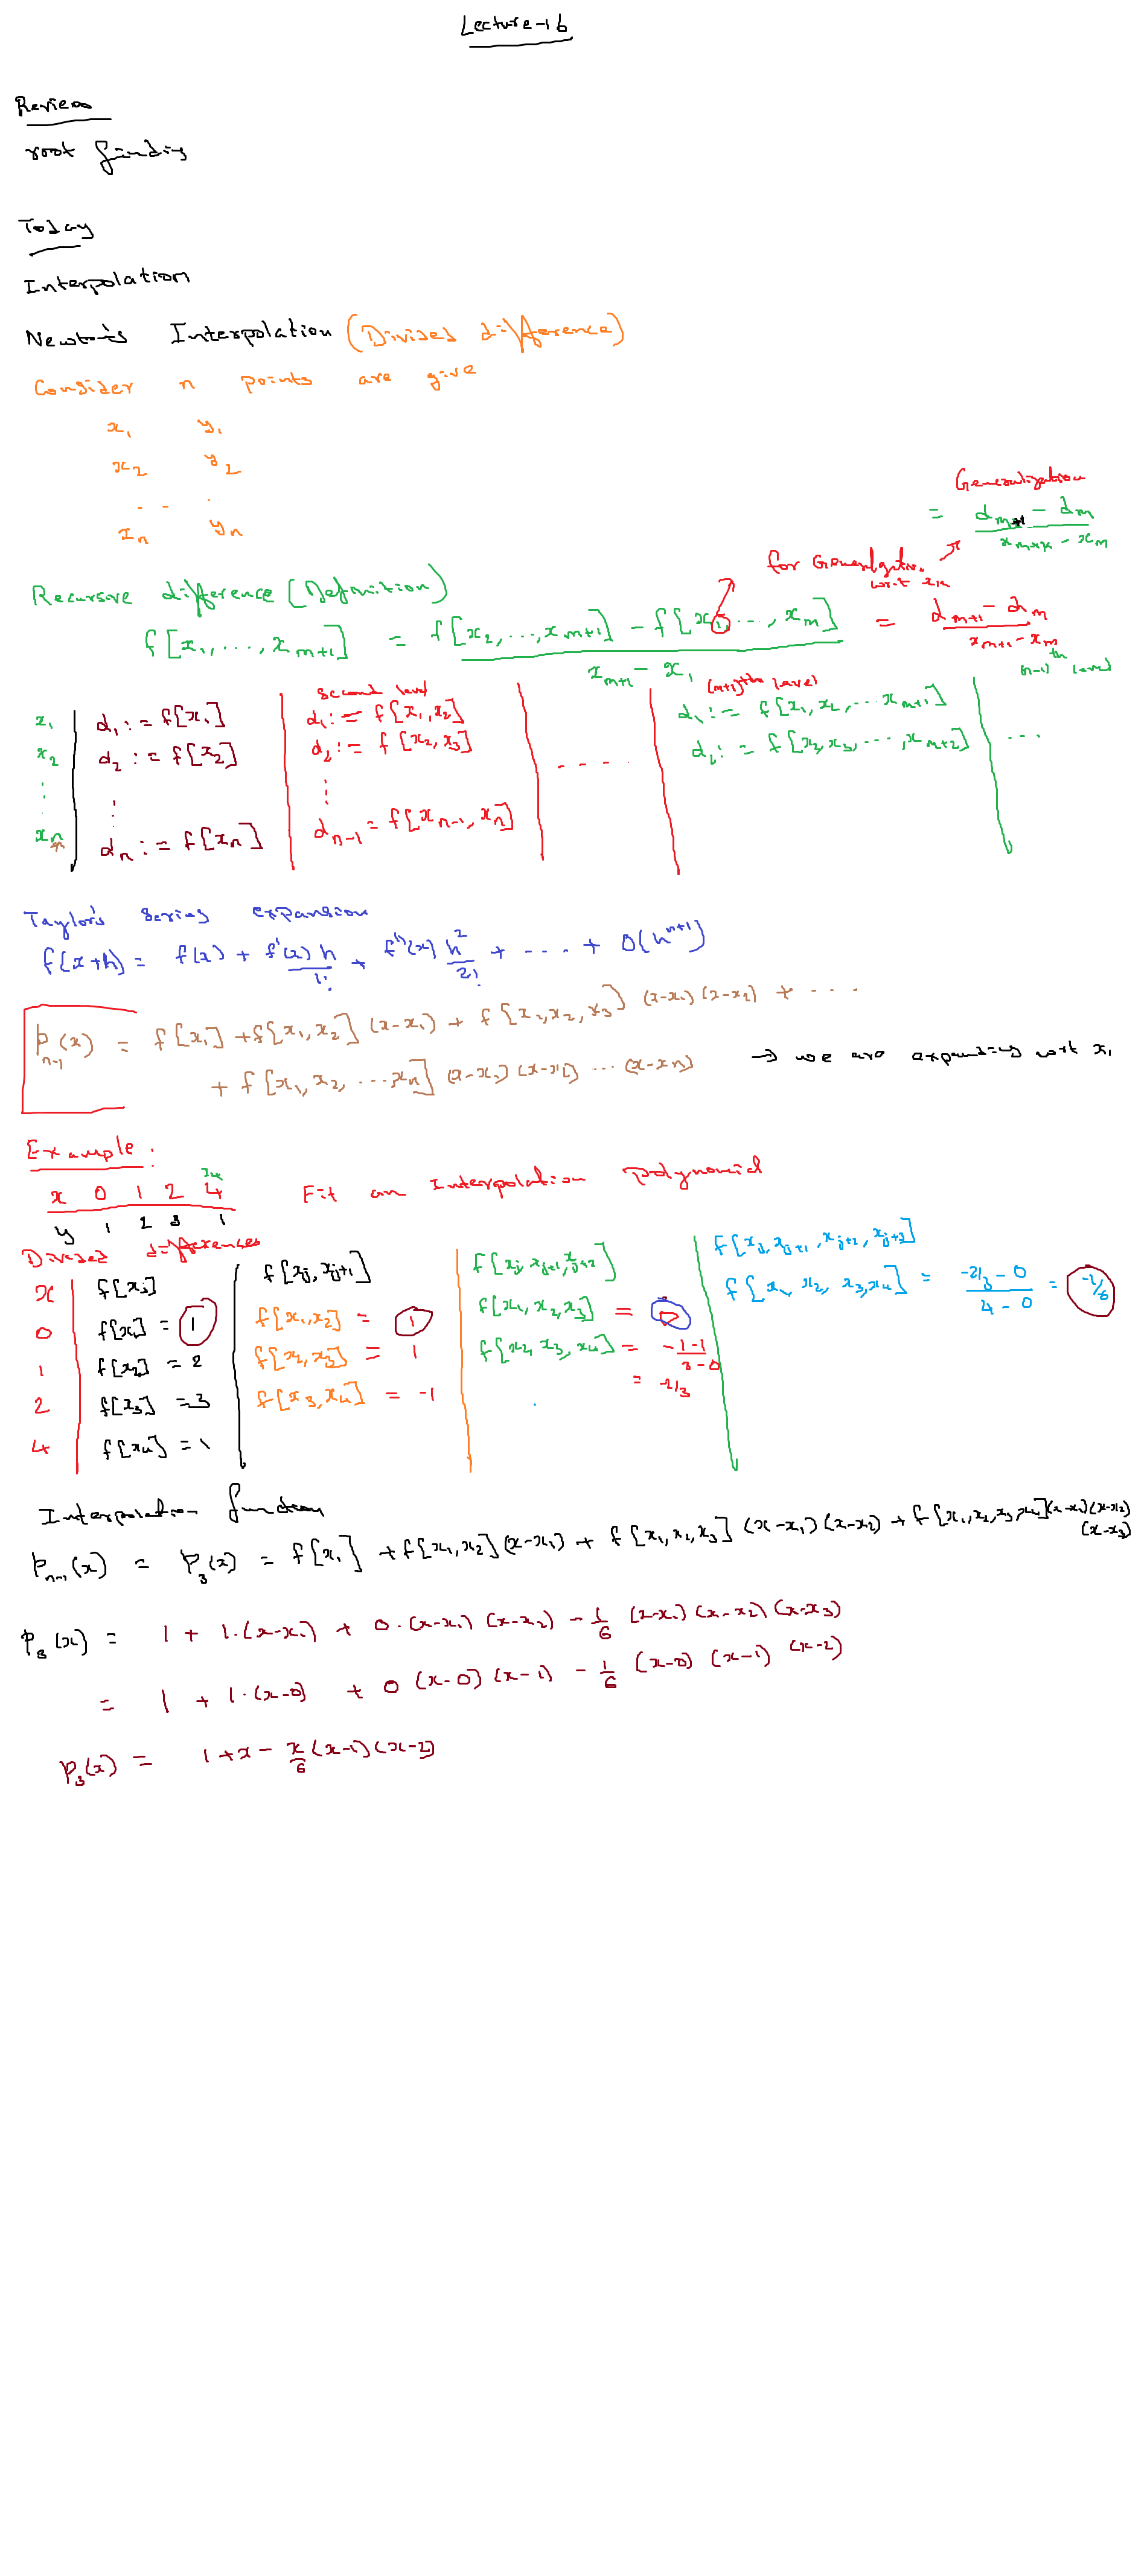 Lecture-16
Review
root finding
Today
Interpolation
Newton's Interpolation (Divided difference)
Consider n points are give
x₁ y₁
x₂ y₂
. . . .
xₙ yₙ
Generalization
= (d_{m+1} - d_m)/(x_{m+k} - x_m)
for Generalization
w.r.t
Recursive difference (Definition)
f[x₁,...,x_{m+1}] = (f[x₂,...,x_{m+1}] - f[x₁,...,x_m])/(x_{m+1} - x₁) = (d_{m+1} - d_m)/(x_{m+1} - x_m)
second level
(m+1)th level
(n-1)th level
x₁ | d₁ := f[x₁] | d₁ := f[x₁,x₂] | .... | d₁ := f[x₁,x₂,...x_{m+1}] | ...
x₂ | d₂ := f[x₂] | d₂ := f[x₂,x₃] | d₂ := f[x₂,x₃,...,x_{m+2}]
⋮ ⋮ ⋮
xₙ | dₙ := f[xₙ] | d_{n-1} = f[x_{n-1},xₙ]
Taylor's series expansion
f(x+h) = f(x) + f'(x) h/1! + f''(x) h²/2! + .... + O(h^{n+1})
P_{n-1}(x) = f[x₁] + f[x₁,x₂](x-x₁) + f[x₁,x₂,x₃](x-x₁)(x-x₂) + ....
+ f[x₁,x₂,...xₙ](x-x₁)(x-x₂)...(x-xₙ) → we are expanding w.r.t x₁
Example:
x 0 1 2 4 Fit an Interpolation polynomial
y 1 2 3 1
Divided differences
x | f[xⱼ] | f[xⱼ,xⱼ₊₁] | f[xⱼ,xⱼ₊₁,xⱼ₊₂] | f[xⱼ,xⱼ₊₁,xⱼ₊₂,xⱼ₊₃]
0 | f[x₁] = 1 | f[x₁,x₂] = 1 | f[x₁,x₂,x₃] = 0 | f[x₁,x₂,x₃,x₄] = (-2/3 - 0)/(4 - 0) = -1/6
1 | f[x₂] = 2 | f[x₂,x₃] = 1 | f[x₂,x₃,x₄] = (-1-1)/(3-0)
= -2/3
2 | f[x₃] = 3 | f[x₃,x₄] = -1
4 | f[x₄] = 1
Interpolation function
P_{n-1}(x) = P₃(x) = f[x₁] + f[x₁,x₂](x-x₁) + f[x₁,x₂,x₃](x-x₁)(x-x₂) + f[x₁,x₂,x₃,x₄](x-x₁)(x-x₂)(x-x₃)
P₃(x) = 1 + 1.(x-x₁) + 0.(x-x₁)(x-x₂) - 1/6 (x-x₁)(x-x₂)(x-x₃)
= 1 + 1.(x-0) + 0(x-0)(x-1) - 1/6 (x-0)(x-1)(x-2)
P₃(x) = 1+x - x/6 (x-1)(x-2)